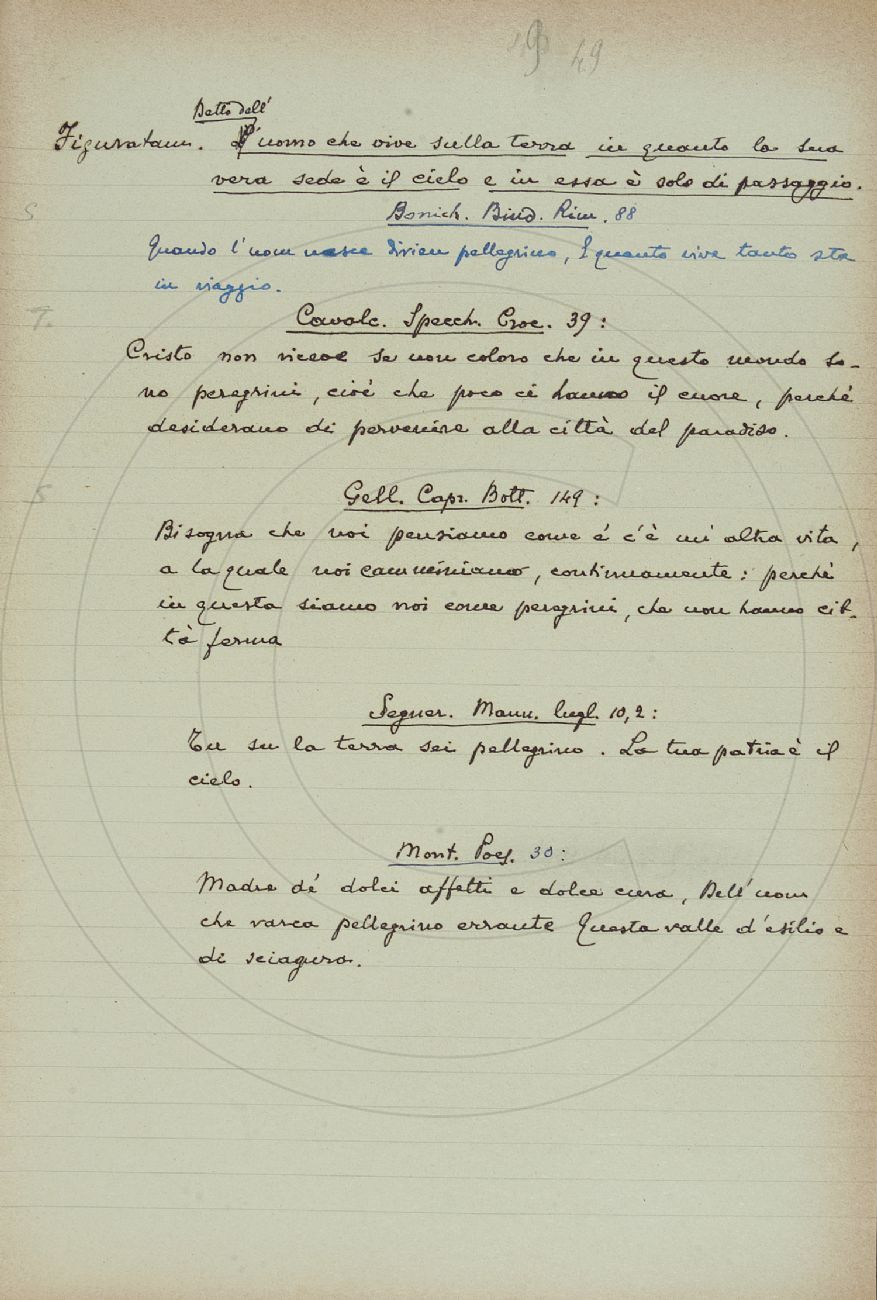 49
Detto dell'
Figuratam. uomo che vive sulla terra in quanto la sua
vera sede è il cielo e in essa è solo di passaggio.
S
Bonich. Bind. Rim. 88
Quando l'uom nasce divien pellegrino, E quanto vive tanto sta
in viaggio.
T.
Cavalc. Specch. Croc. 39:
Cristo non riceve se non coloro che in questo mondo so-
no peregrini, cioè che poco ci hanno il cuore, perché
desiderano di pervenire alla città del paradiso.
S
Gell. Capr. Bott. 149:
Bisogna che noi pensiamo come e' c'è un'altra vita,
a la quale noi camminiamo, continuamente: perché
in questa siamo noi come peregrini, che non hanno cit-
tà ferma
Segner. Mann. lugl. 10,2:
Tu su la terra sei pellegrino. La tua patria è il
cielo.
Mont. Poes. 30:
Madre de' dolci affetti e dolce cura, Dell'uom
che varca pellegrino errante Questa valle d'esilio e
di sciagura.